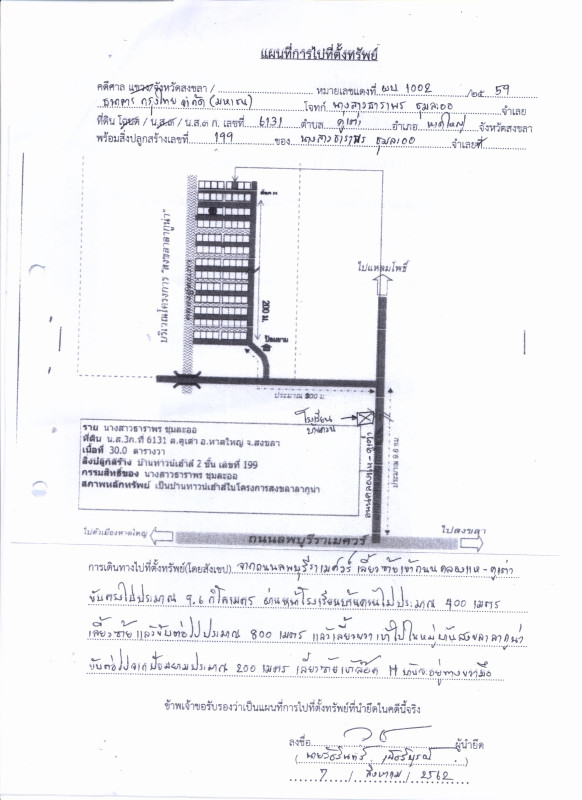 แผนที่การไปที่ตั้งทรัพย์
คดีศาล แขวง/จังหวัดสงขลา / หมายเลขแดงที่ ผบ. 1002 /๒๕ 59
ธนาคาร กรุงไทย จำกัด (มหาชน) โจทก์ นางสาวธาราพร ชุมละออ จำเลย
ที่ดิน โฉนด / น.ส.๓ / น.ส.๓ ก. เลขที่ 6131 ตำบล คูเต่า อำเภอ หาดใหญ่ จังหวัดสงขลา
พร้อมสิ่งปลูกสร้างเลขที่ 199 ของ นางสาวธาราพร ชุมละออ จำเลยที่
ล๊อค H
ไปแหลมโพธิ์
200 ม.
ป้อมยาม
ประมาณ 800 ม.
โรงเรียน
บ้านควน
ราย นางสาวธาราพร ชุมละออ
ที่ดิน น.ส.3ก.ที่ 6131 ต.คูเต่า อ.หาดใหญ่ จ.สงขลา
เนื้อที่ 30.0 ตารางวา
สิ่งปลูกสร้าง บ้านทาวน์เฮ้าส์ 2 ชั้น เลขที่ 199
กรรมสิทธิ์ของ นางสาวธาราพร ชุมละออ
สภาพหลักทรัพย์ เป็นบ้านทาวน์เฮ้าส์ในโครงการสงขลาลากูน่า
ประมาณ 9.6 กม.
ไปตัวเมืองหาดใหญ่
ถนนลพบุรีราเมศวร์
ไปสงขลา
การเดินทางไปที่ตั้งทรัพย์(โดยสังเขป) จากถนนลพบุรีราเมศวร์ เลี้ยวซ้ายเข้าถนนคลองแห - คูเต่า
ขับตรงไปประมาณ 9.6 กิโลเมตร ผ่านหน้าโรงเรียนบ้านควนไปประมาณ 400 เมตร
เลี้ยวซ้าย แล้วขับต่อไปประมาณ 800 เมตร แล้วเลี้ยวขวา เข้าไปในหมู่บ้านสงขลาลากูน่า
ขับต่อไปจากป้อมยามประมาณ 200 เมตร เลี้ยวซ้ายเข้าล๊อค H บ้านจะอยู่ทางขวามือ
ข้าพเจ้าขอรับรองว่าเป็นแผนที่การไปที่ตั้งทรัพย์ที่นำยึดในคดีนี้จริง
ลงชื่อ ผู้นำยึด
7 / สิงหาคม / 2562